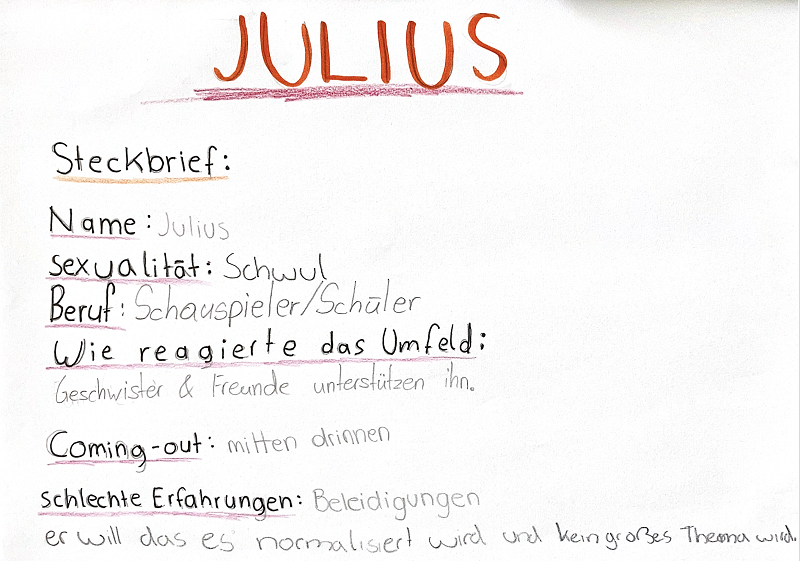 JULIUS
Steckbrief:
Name: Julius
Sexualität: Schwul
Beruf: Schauspieler/Schüler
Wie reagierte das Umfeld:
Geschwister & Freunde unterstützen ihn.
Coming-out: mitten drinnen
schlechte Erfahrungen: Beleidigungen
er will das es normalisiert wird und kein großes Thema wird.